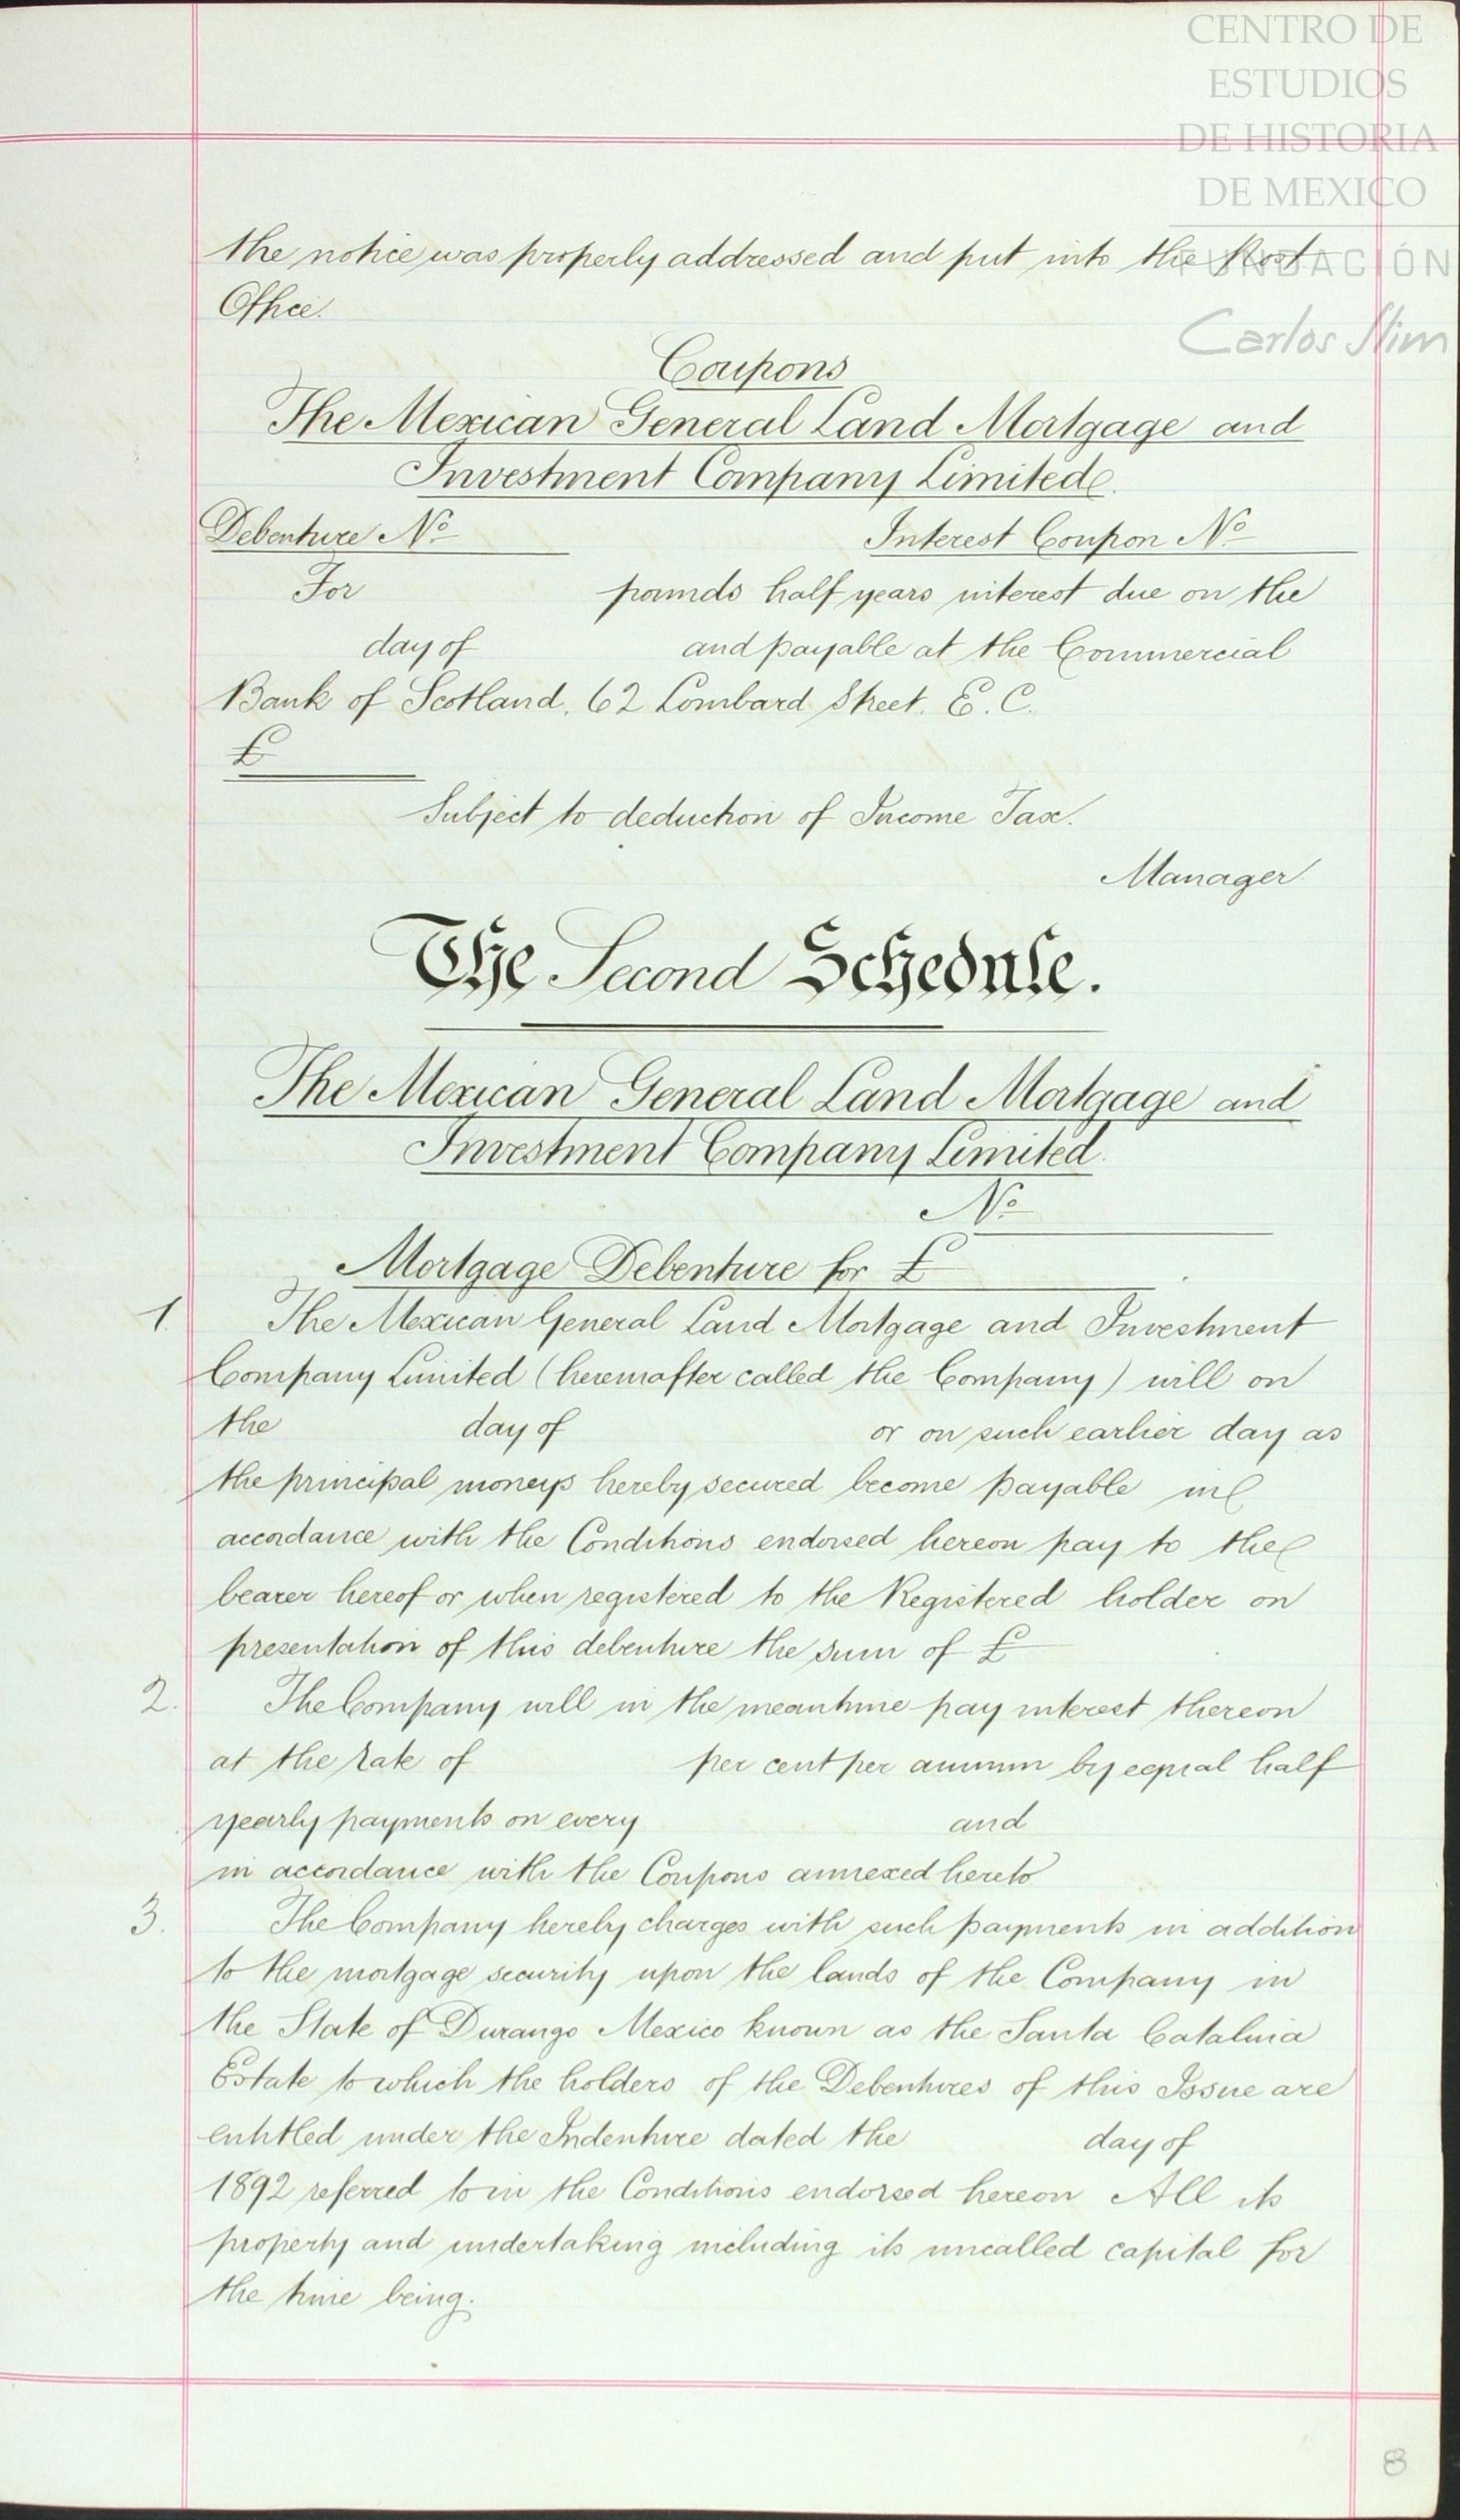 CENTRO DE
ESTUDIOS
DE HISTORIA
DE MEXICO
FUNDACIÓN
Carlos Slim
the notice was properly addressed and put into the Post
Office.
Coupons
The Mexican General Land Mortgage and
Investment Company Limited.
Debenture No Interest Coupon No
For pounds half years interest due on the
day of and payable at the Commercial
Bank of Scotland, 62 Lombard Street. E.C.
£
Subject to deduction of Income Tax.
Manager
The Second Schedule.
The Mexican General Land Mortgage and
Investment Company Limited.
No
Mortgage Debenture for £
1. The Mexican General Land Mortgage and Investment
Company Limited (hereinafter called the Company) will on
the day of or on such earlier day as
the principal moneys hereby secured become payable in
accordance with the Conditions endorsed hereon pay to the
bearer hereof or when registered to the Registered holder on
presentation of this debenture the sum of £
2. The Company will in the meantime pay interest thereon
at the rate of per cent per annum by equal half
yearly payments on every and
in accordance with the Coupons annexed hereto
3. The Company hereby charges with such payments in addition
to the mortgage security upon the lands of the Company in
the State of Durango Mexico known as the Santa Catalina
Estate to which the holders of the Debentures of this Issue are
entitled under the Indenture dated the day of
1892 referred to in the Conditions endorsed hereon All its
property and undertaking including its uncalled capital for
the time being.
8